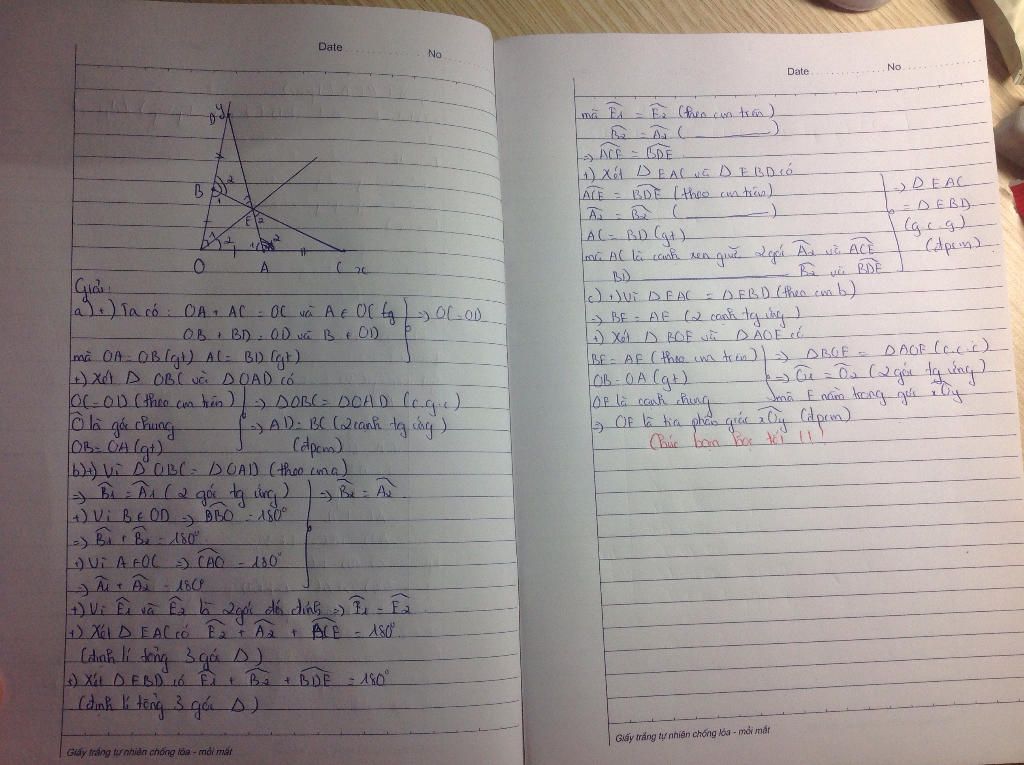 Date No
y
D
B 2
1
E 2
1 2
1 2
O A C x
Giải:
a) +) Ta có : OA + AC = OC và A ∈ OC
OB + BD = OD và B ∈ OD
⇒ OC = OD
mà OA = OB (gt) AC = BD (gt)
+) Xét Δ OBC và Δ OAD có
OC = OD (theo cm trên)
Ô là góc chung
OB = OA (gt)
⇒ ΔOBC = ΔOAD (c.g.c)
⇒ AD = BC (2 cạnh tg ứng)
(đpcm)
b) +) Vì Δ OBC = ΔOAD (theo cm a)
⇒ B̂1 = Â1 (2 góc tg ứng)
+) Vì B ∈ OD ⇒ = 180°
⇒ B̂1 + B̂2 = 180°
+) Vì A ∈ OC ⇒ CAO = 180°
⇒ Â1 + Â2 = 180°
⇒ B̂2 = Â2
+) Vì Ê1 và Ê2 là 2 góc đối đỉnh ⇒ Ê1 = Ê2
+) Xét Δ EAC có Ê2 + Â2 + ACE = 180°
(định lí tổng 3 góc Δ)
+) Xét Δ EBD có Ê1 + B̂2 + BDE = 180°
(định lí tổng 3 góc Δ)
Giấy trắng tự nhiên chống lóa - mỏi mắt
Date No
mà Ê1 = Ê2 (theo cm trên)
B̂2 = Â2 ( )
⇒ ACE = BDE
+) Xét Δ EAC và Δ EBD có
ACE = BDE (theo cm trên)
Â2 = B̂2 ( )
AC = BD (gt)
mà AC là cạnh xen giữa 2 góc Â2 và ACE
BD B̂2 và BDE
⇒ Δ EAC
= Δ EBD
(g.c.g)
(đpcm)
c) +) Vì Δ EAC = Δ EBD (theo cm b)
⇒ BE = AE (2 cạnh tg ứng)
+) Xét Δ BOE và Δ AOE có
BE = AE (theo cm trên)
OB = OA (gt)
OE là cạnh chung
⇒ ΔBOE = ΔAOE (c.c.c)
⇒ Ô1 = Ô2 (2 góc tg ứng)
mà E nằm trong góc xOy
⇒ OE là tia phân giác xOy (đpcm)
Chúc bạn học tốt !!!
Giấy trắng tự nhiên chống lóa - mỏi mắt